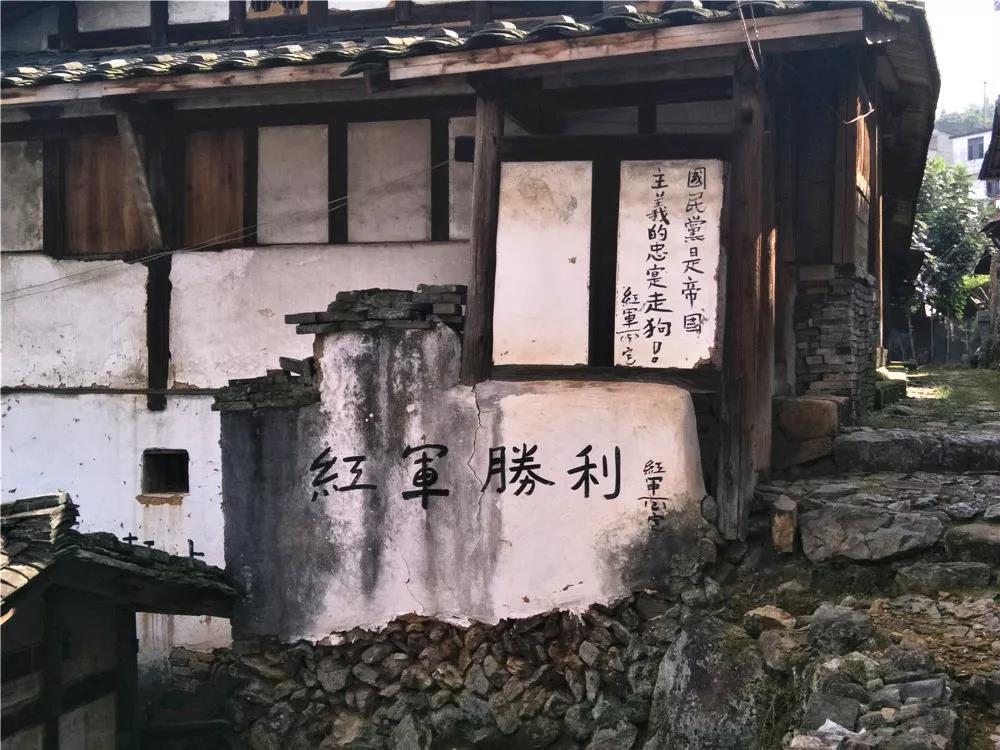 國民黨是帝國
主義的忠寔走狗！
紅軍㊢宣
紅軍勝利
紅軍㊢宣